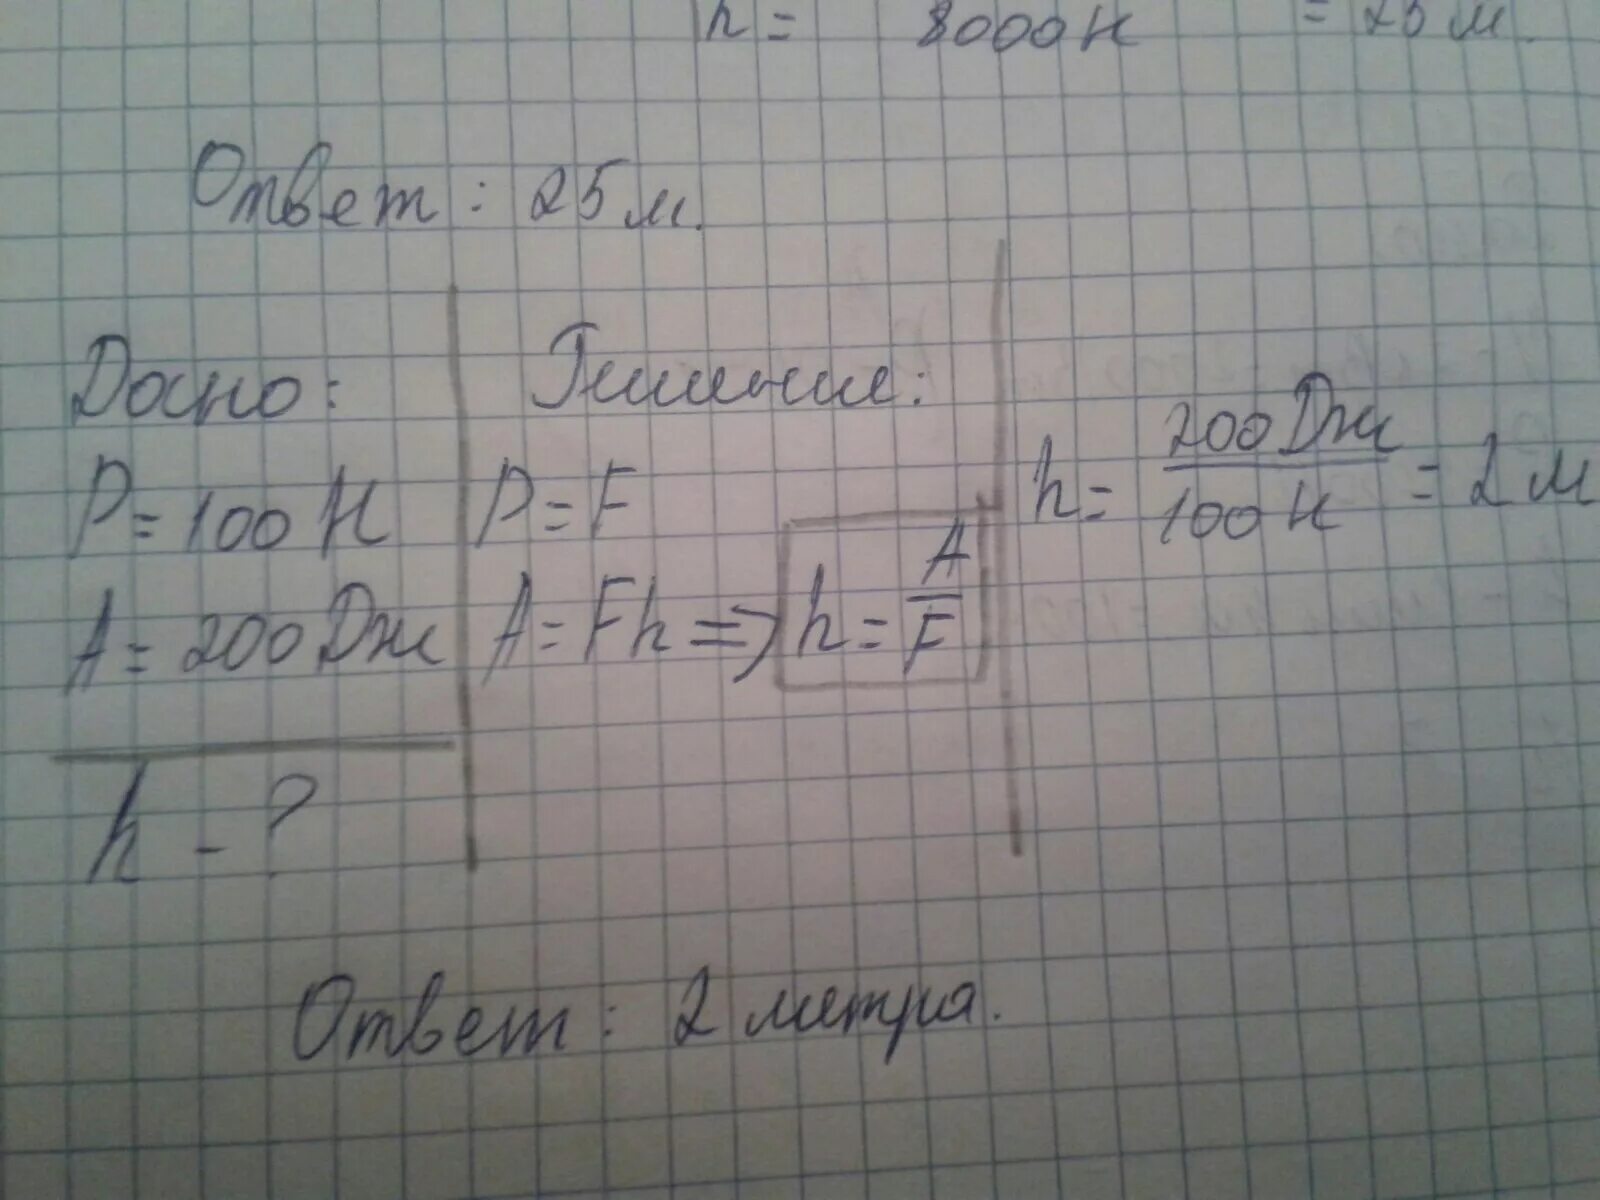 h = 8000 Н = 25 м.
Ответ: 25 м.
Дано:
P = 100 Н
A = 200 Дж
h - ?
Решение:
P = F
A = Fh => h = A/F
h = 200 Дж/100 Н = 2 м
Ответ: 2 метра.